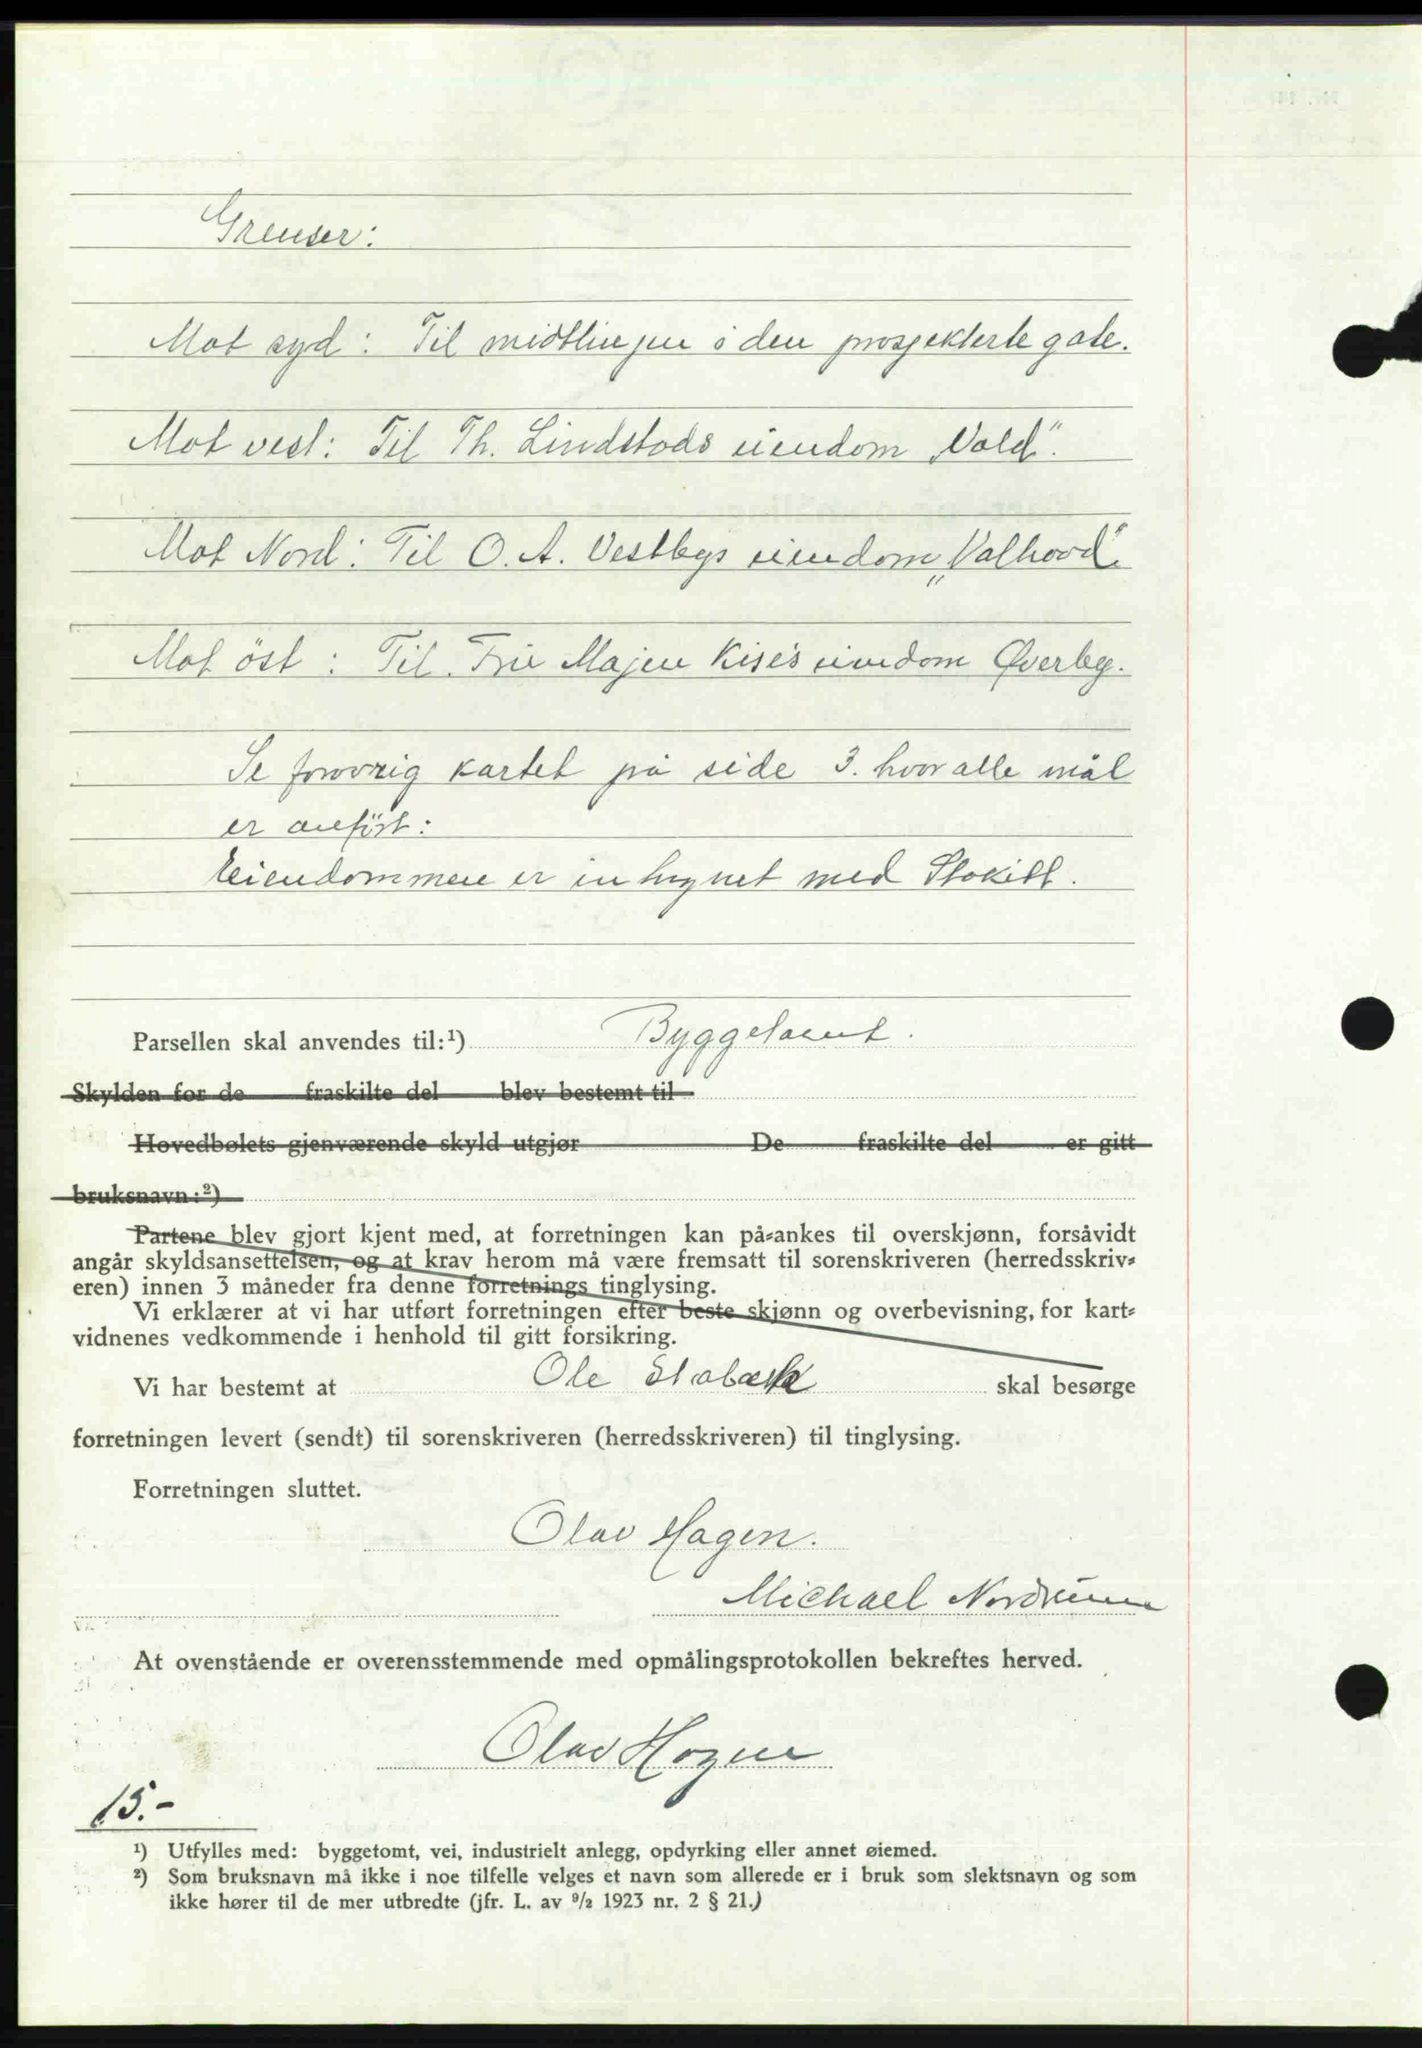 Grenser:
Mot syd: Til midtlinjen i den prosjekterte gate.
Mot vest: Til Th. Lindstads eiendom „Vold".
Mot Nord: Til O. A. Vestbys eiendom „Valhovd".
Mot öst: Til Majen Kise's eiendom Øverby.
Se forøvrig kartet på side 3. hvor alle mål
er anført:
Eiendommen er inhegnet med Stakitt.
Parsellen skal anvendes til:¹) Byggetomt.
Skylden for de fraskilte del blev bestemt til
Hovedbølets gjenværende skyld utgjør De fraskilte del er gitt
bruksnavn:²)
Partene blev gjort kjent med, at forretningen kan på-ankes til overskjønn, forsåvidt
angår skyldsansettelsen, og at krav herom må være fremsatt til sorenskriveren (herredsskriv-
eren) innen 3 måneder fra denne forretnings tinglysing.
Vi erklærer at vi har utført forretningen efter beste skjønn og overbevisning, for kart-
vidnenes vedkommende i henhold til gitt forsikring.
Vi har bestemt at Ole Stabæk skal besørge
forretningen levert (sendt) til sorenskriveren (herredsskriveren) til tinglysing.
Forretningen sluttet.
Olav Hagen.
Michael Nordrum
At ovenstående er overensstemmende med opmålingsprotokollen bekreftes herved.
Olav Hagen
15.-
¹) Utfylles med: byggetomt, vei, industrielt anlegg, opdyrking eller annet øiemed.
²) Som bruksnavn må ikke i noe tilfelle velges et navn som allerede er i bruk som slektsnavn og som
ikke hører til de mer utbredte (jfr. L. av ⁹/₂ 1923 nr. 2 § 21.)